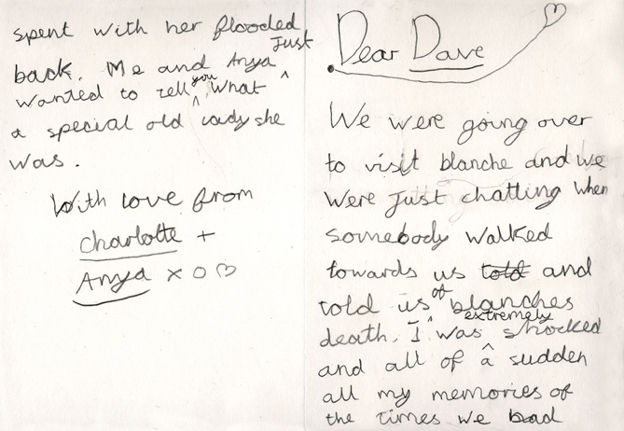 Dear Dave
We were going over
to visit blanche and we
were just chatting when
somebody walked
towards us told and
told us of blanches
death. I was extremely shocked
and all of a sudden
all my memories of
the times we had
spent with her flooded
back. Me and Anya just
wanted to tell you what
a special old lady she
was.
With love from
Charlotte +
Anya x o ♡